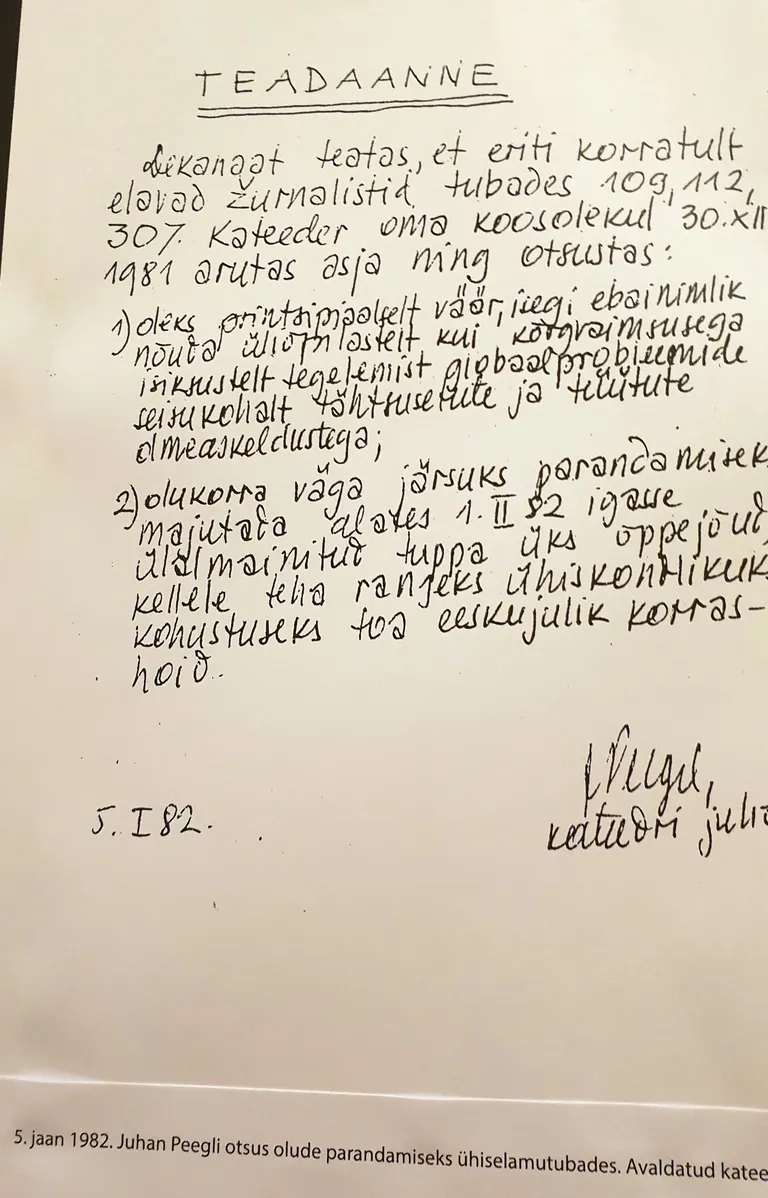 TEADAANNE
Dekanaat teatas, et eriti korratult
elavad žurnalistid tubades 109, 112,
307. Kateeder oma koosolekul 30.XII
1981 arutas asja ning otsustas:
1) oleks printsipiaalselt väär, isegi ebainimlik
nõuda üliõpilastelt kui kõrgvaimsusega
isiksustelt tegelemist globaalprobleemide
seisukohalt tähtsusetute ja tüütute
olmeaskeldustega;
2) olukorra väga järsuks parandamisek
majutada alates 1. II 82 igasse
ülalmainitud tuppa üks õppejõud,
kellele teha rangeks ühiskondlikuk
kohustuseks toa eeskujulik korras-
hoid.
J Peegel,
5. I 82.
kateedri juha
5. jaan 1982. Juhan Peegli otsus olude parandamiseks ühiselamutubades. Avaldatud katee